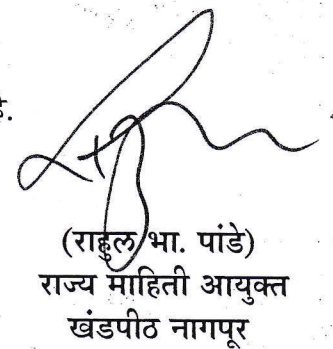 (राहुल भा. पांडे)
राज्य माहिती आयुक्त
खंडपीठ नागपूर